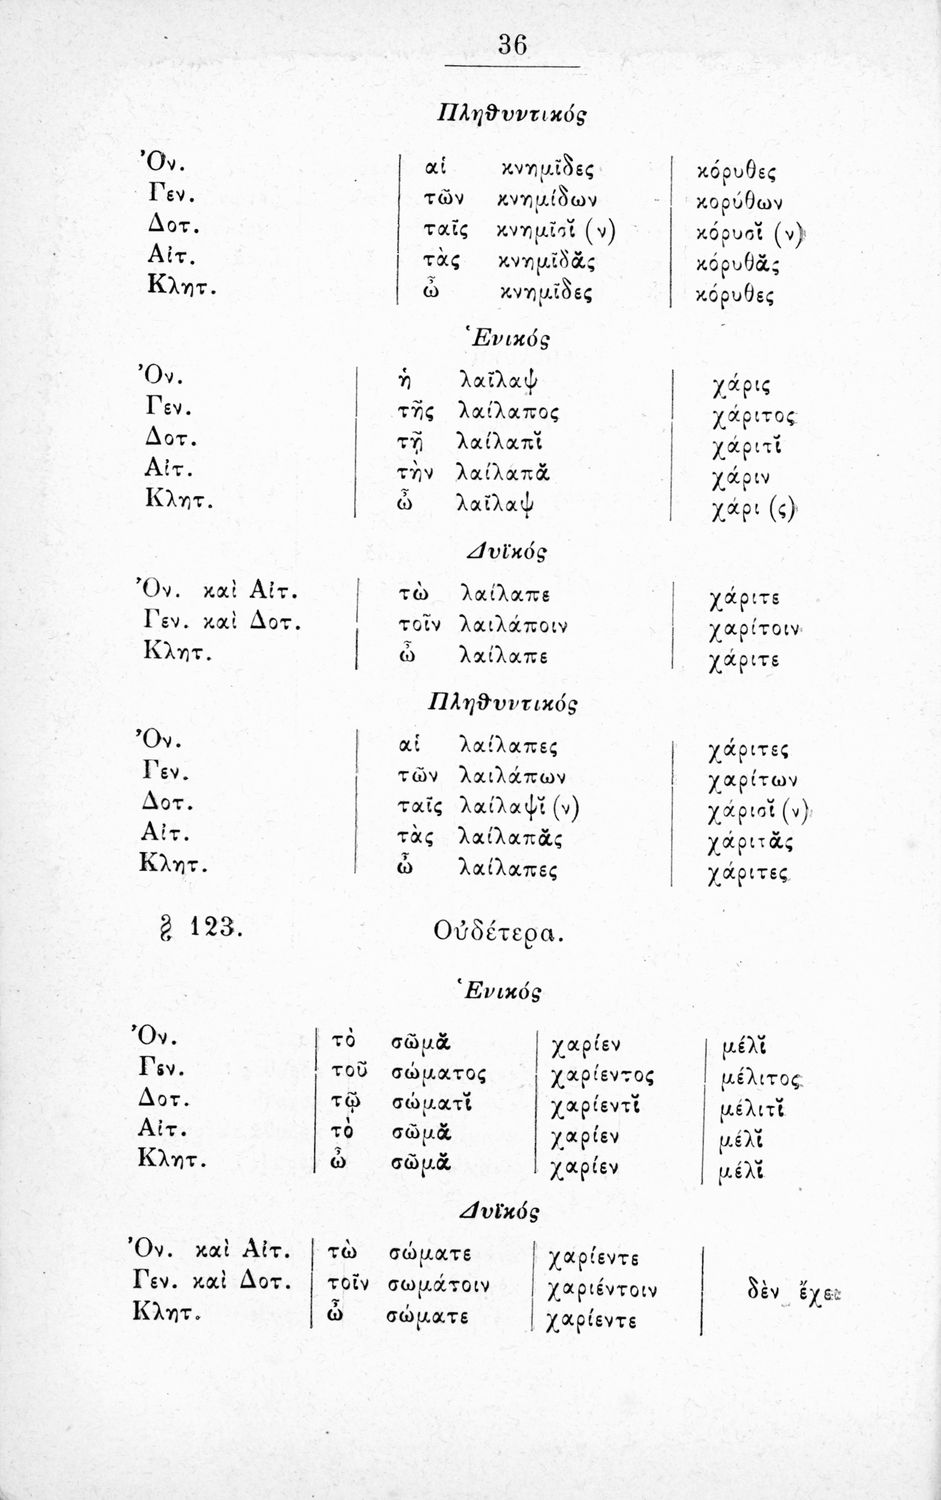 36
Πληθυντικός
Ὀν. αἱ κνημῖδες κόρυθες
Γεν. τῶν κνημίδων κορύθων
Δοτ. ταῖς κνημῖσῐ (ν) κόρυσῐ (ν)
Αἰτ. τὰς κνημῖδᾰς κόρυθᾰς
Κλητ. ὦ κνημῖδες κόρυθες
Ἑνικός
Ὀν. ἡ λαῖλαψ χάρις
Γεν. τῆς λαίλαπος χάριτος
Δοτ. τῇ λαίλαπῐ χάριτῐ
Αἰτ. τὴν λαίλαπᾰ χάριν
Κλητ. ὦ λαῖλαψ χάρι (ς)
Δυϊκός
Ὀν. καὶ Αἰτ. τὼ λαίλαπε χάριτε
Γεν. καὶ Δοτ. τοῖν λαιλάποιν χαρίτοιν
Κλητ. ὦ λαίλαπε χάριτε
Πληθυντικός
Ὀν. αἱ λαίλαπες χάριτες
Γεν. τῶν λαιλάπων χαρίτων
Δοτ. ταῖς λαίλαψῐ (ν) χάρισῐ (ν)
Αἰτ. τὰς λαίλαπᾰς χάριτᾰς
Κλητ. ὦ λαίλαπες χάριτες
§ 123. Οὐδέτερα.
Ἑνικός
Ὀν. τὸ σῶμᾰ χαρίεν μέλῐ
Γεν. τοῦ σώματος χαρίεντος μέλιτος
Δοτ. τῷ σώματῐ χαρίεντῐ μέλιτῐ
Αἰτ. τὸ σῶμᾰ χαρίεν μέλῐ
Κλητ. ὦ σῶμᾰ χαρίεν μέλῐ
Δυϊκός
Ὀν. καὶ Αἰτ. τὼ σώματε χαρίεντε
Γεν. καὶ Δοτ. τοῖν σωμάτοιν χαριέντοιν δὲν ἔχει
Κλητ. ὦ σώματε χαρίεντε